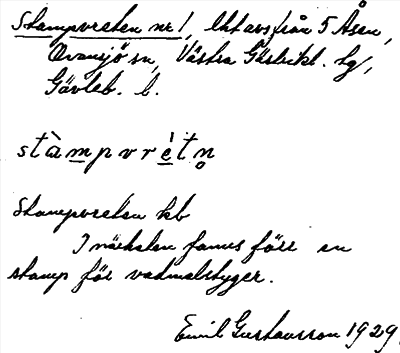 Stampvreten nr 1, Uktavs från 5 Åsen,
Ovansjö sn, Västra Gästrikl. hg,
Gävleb. l.
stàmpvrètn̥
Stampvreten kb
I närheten fanns förr en
stamp för vadmalstyger.
Emil Gustavsson 1929.